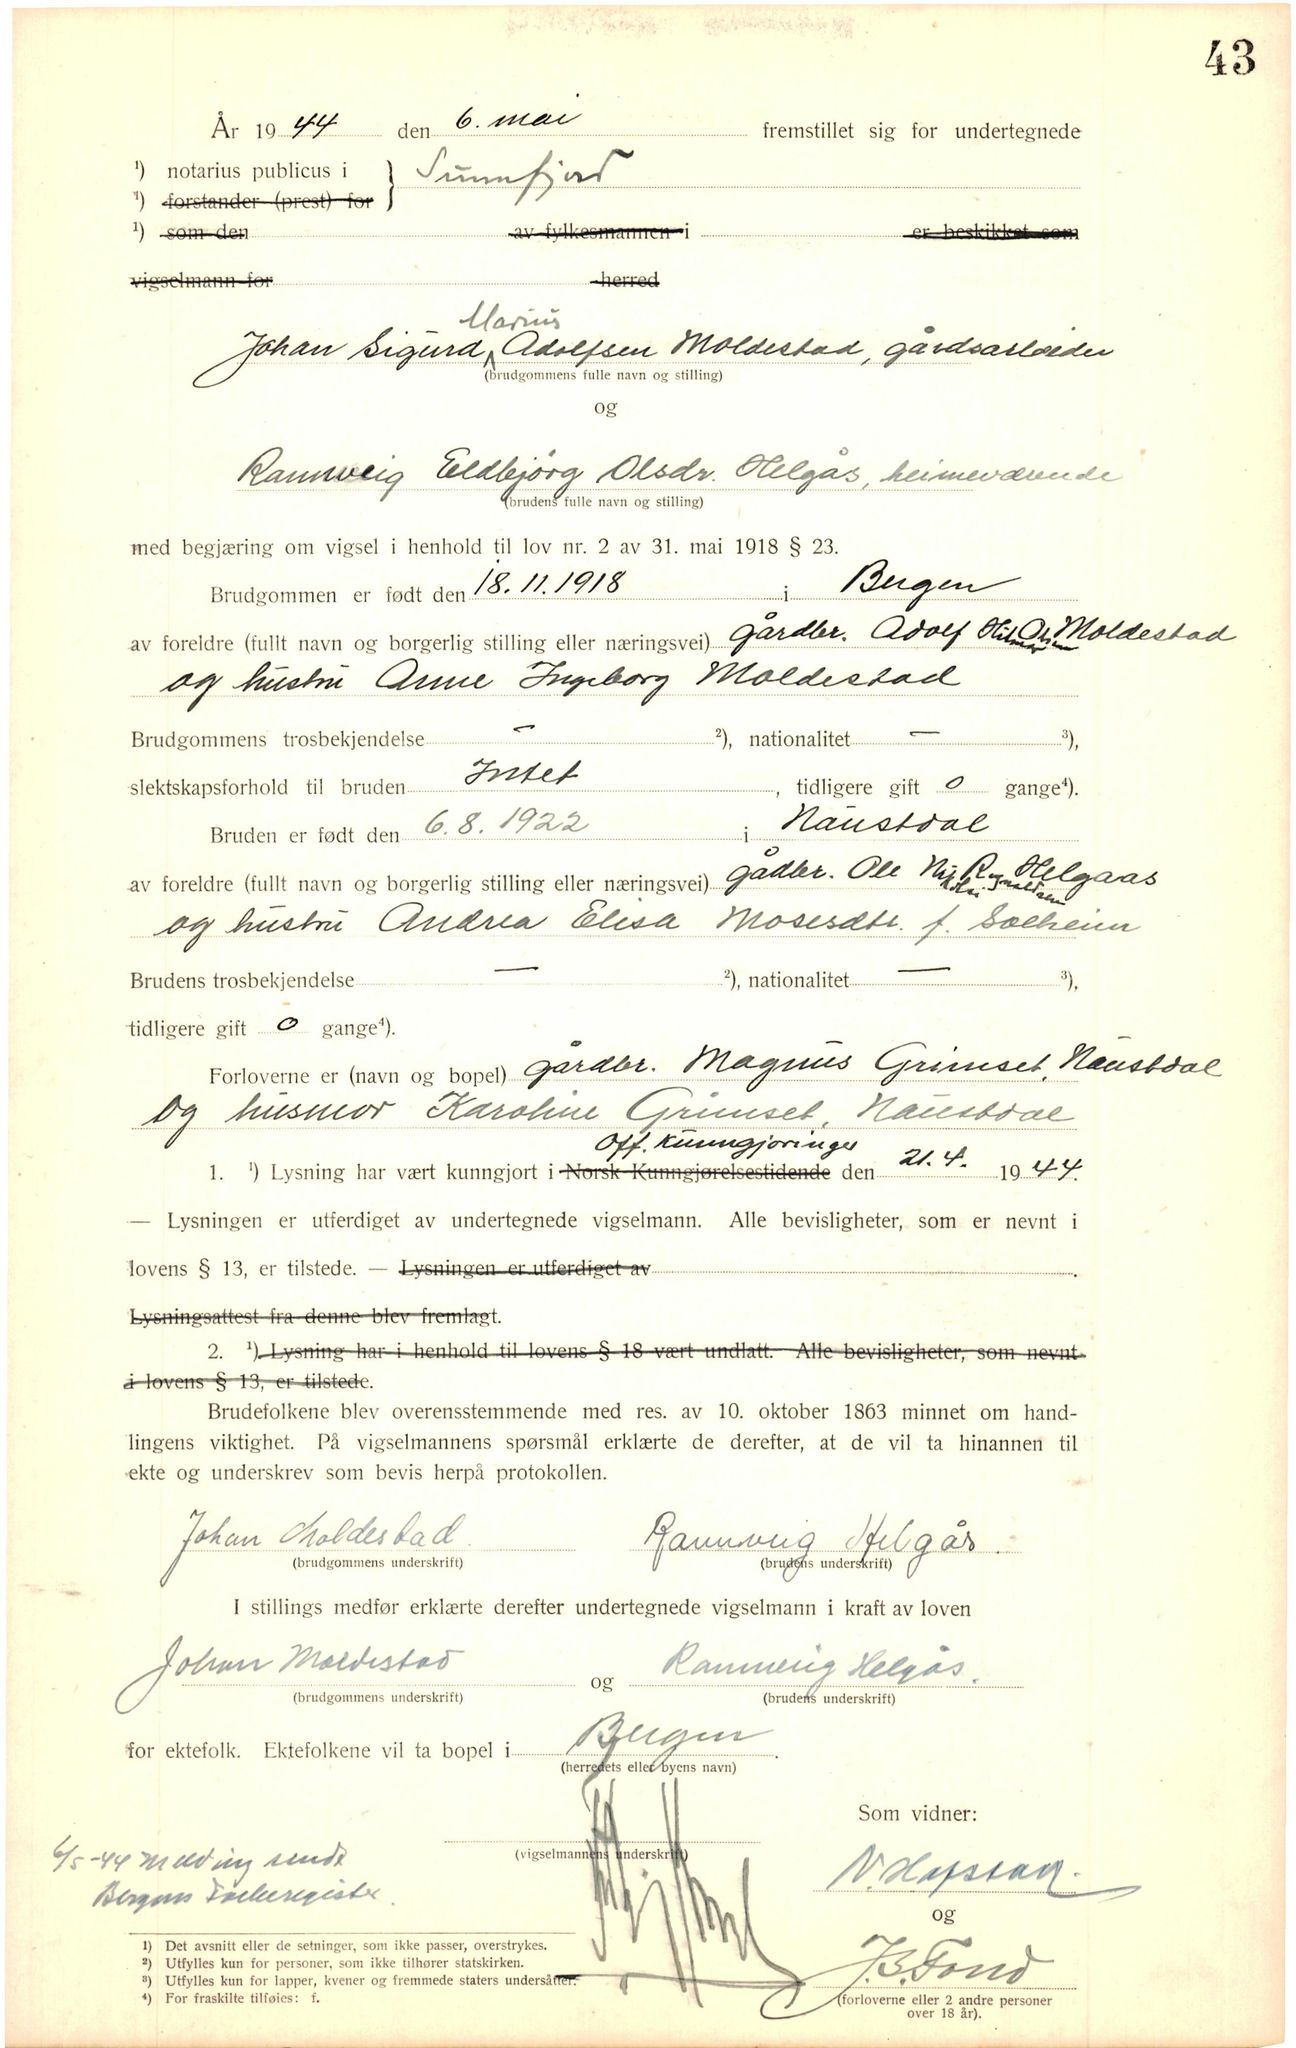 43
År 1944 den 6. mai fremstillet sig for undertegnede
¹) notarius publicus i } Sunnfjord
¹) forstander (prest) for
¹) som den av fylkesmannen i er beskikket som
vigselmann for herred
Marius
Johan Sigurd Adolfsen Moldestad, gårdsarbeider
(brudgommens fulle navn og stilling)
og
Rannveig Eldbjørg Olsdr. Helgås, heimeværende
(brudens fulle navn og stilling)
med begjæring om vigsel i henhold til lov nr. 2 av 31. mai 1918 § 23.
Brudgommen er født den 18.11.1918 i Bergen
av foreldre (fullt navn og borgerlig stilling eller næringsvei) gårdbr. Adolf Moldestad
og hustru Anne Ingeborg Moldestad
Brudgommens trosbekjendelse — ²), nationalitet — ³),
slektskapsforhold til bruden Intet, tidligere gift 0 gange⁴).
Bruden er født den 6.8.1922 i Naustdal
av foreldre (fullt navn og borgerlig stilling eller næringsvei) gådbr. Ole Helgaas
og hustru Andrea Elisa Mosesdtr. f. Solheim
Brudens trosbekjendelse — ²), nationalitet — ³),
tidligere gift 0 gange⁴).
Forloverne er (navn og bopel) gårdbr. Magnus Grimset, Naustdal
og husmor Karoline Grimset, Naustdal
Off. kunngjøringer
1. ¹) Lysning har vært kunngjort i Norsk Kunngjørelsestidende den 21.4. 1944.
— Lysningen er utferdiget av undertegnede vigselmann. Alle bevisligheter, som er nevnt i
lovens § 13, er tilstede. — Lysningen er utferdiget av .
Lysningsattest fra denne blev fremlagt.
2. ¹) Lysning har i henhold til lovens § 18 vært undlatt. Alle bevisligheter, som nevnt
i lovens § 13, er tilstede.
Brudefolkene blev overensstemmende med res. av 10. oktober 1863 minnet om hand-
lingens viktighet. På vigselmannens spørsmål erklærte de derefter, at de vil ta hinannen til
ekte og underskrev som bevis herpå protokollen.
Johan Moldestad Rannveig Helgås.
(brudgommens underskrift) (brudens underskrift)
I stillings medfør erklærte derefter undertegnede vigselmann i kraft av loven
Johan Moldestad og Rannveig Helgås.
(brudgommens underskrift) (brudens underskrift)
for ektefolk. Ektefolkene vil ta bopel i Bergen.
(herredets eller byens navn)
Som vidner:
(vigselmannens underskrift)
6/5-44 Melding sendt
Bergens Folkeregister.
N. Hafstad.
og
J.B. Fond
(forloverne eller 2 andre personer
over 18 år).
1) Det avsnitt eller de setninger, som ikke passer, overstrykes.
2) Utfylles kun for personer, som ikke tilhører statskirken.
3) Utfylles kun for lapper, kvener og fremmede staters undersåtter.
4) For fraskilte tilføies: f.